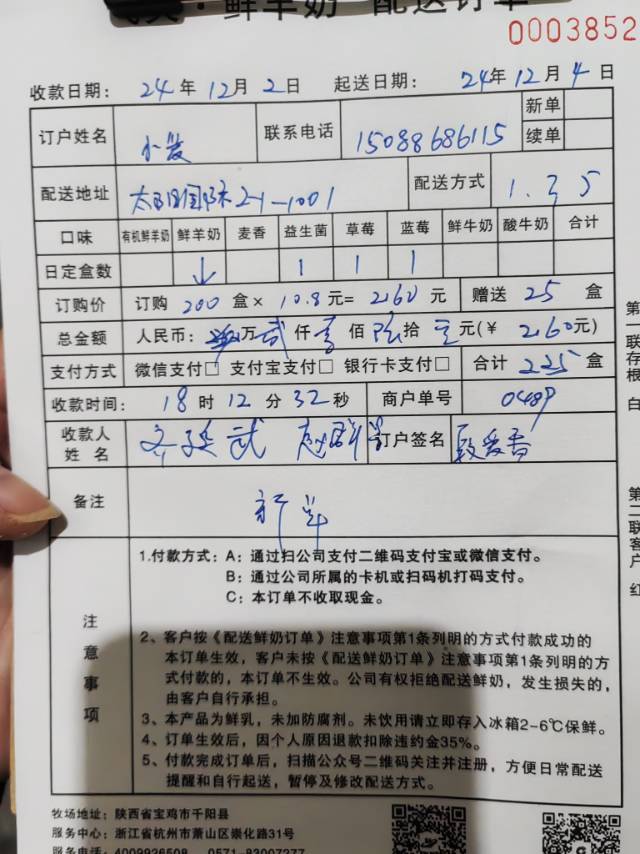 ·鲜羊奶 配送订单
0003852
收款日期： 24年12月2日 起送日期： 24年12月4日
订户姓名 联系电话 15088686115 新单
续单
配送地址 太阳国际2-1-1001 配送方式 1.3.5
口味 有机鲜羊奶 鲜羊奶 麦香 益生菌 草莓 蓝莓 鲜牛奶 酸牛奶 合计
日定盒数 1 1 1 1
订购价 订购 200 盒× 10.8元= 2160 元 赠送 25 盒
总金额 人民币： 万贰仟壹佰陆拾元(￥ 2160元)
支付方式 微信支付□ 支付宝支付□ 银行卡支付□ 合计 225盒
收款时间： 18时12分32秒 商户单号 0489
收款人 姓名 订户签名
备注 新单
注意事项
1.付款方式：A：通过扫公司支付二维码支付宝或微信支付。
B：通过公司所属的卡机或扫码机打码支付。
C：本订单不收取现金。
2、客户按《配送鲜奶订单》注意事项第1条列明的方式付款成功的
本订单生效，客户未按《配送鲜奶订单》注意事项第1条列明的方
式付款的，本订单不生效。公司有权拒绝配送鲜奶，发生损失的，
由客户自行承担。
3、本产品为鲜乳，未加防腐剂。未饮用请立即存入冰箱2-6℃保鲜。
4、订单生效后，因个人原因退款扣除违约金35%。
5、付款完成订单后，扫描公众号二维码关注并注册，方便日常配送
提醒和自行起送，暂停及修改配送方式。
牧场地址：陕西省宝鸡市千阳县
服务中心：浙江省杭州市萧山区崇化路31号
服务电话：4009926508 0571-83007277
第一联存根 白
第二联客户 红